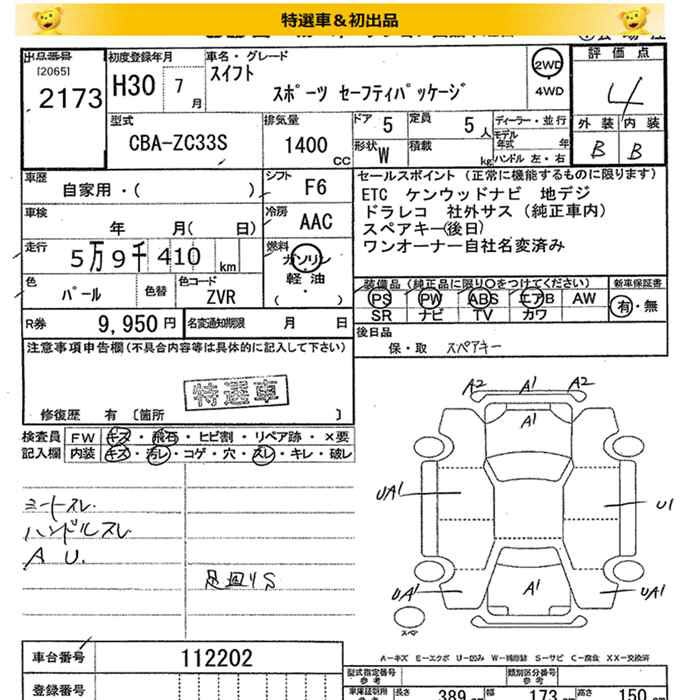 特選車＆初出品
出品番号
[2065]
2173
初度登録年月
H30 7月
車名・グレード
スイフト
スポーツ セーフティパッケージ
2WD
4WD
評価点
4
外装 内装
B B
型式
CBA-ZC33S
排気量
1400 CC
ドア 5
定員 5人
形状 W
積載 kg
ディーラー・並行
モデル年式 年
ハンドル 左・右
車歴
自家用・( )
シフト
F6
車検
年 月( 日)
冷房
AAC
走行
5万9千410 km
燃料
ガソリン
軽油
( )
色
パール
色替
色コード
ZVR
R券 9,950円
名変通知期限 月 日
セールスポイント（正常に機能するものに限ります）
ETC ケンウッドナビ 地デジ
ドラレコ 社外サス（純正車内）
スペアキー(後日)
ワンオーナー自社名変済み
装備品（純正品に限り○をつけてください）
新車保証書
PS PW ABS エアB AW
有・無
SR ナビ TV カワ
後日品
保・取 スペアキー
注意事項申告欄(不具合内容等は具体的に記入して下さい)
特選車
修復歴 有 〔箇所 〕
検査員 FW キズ・飛石・ヒビ割・リペア跡・×要
記入欄 内装 キズ・汚レ・コゲ・穴・スレ・キレ・破レ
シートスレ
ハンドルスレ
A U.
足回リS
A2 A1 A2
A1
UA1
U1
UA1 A1 UA1
スペア
A－キズ E－エクボ U－凹み W－補修跡 S－サビ C－腐食 XX－交換済
車台番号 112202
登録番号
型式指定番号
参考
類別区分番号
参考
長さ 389 幅 173 高さ 150